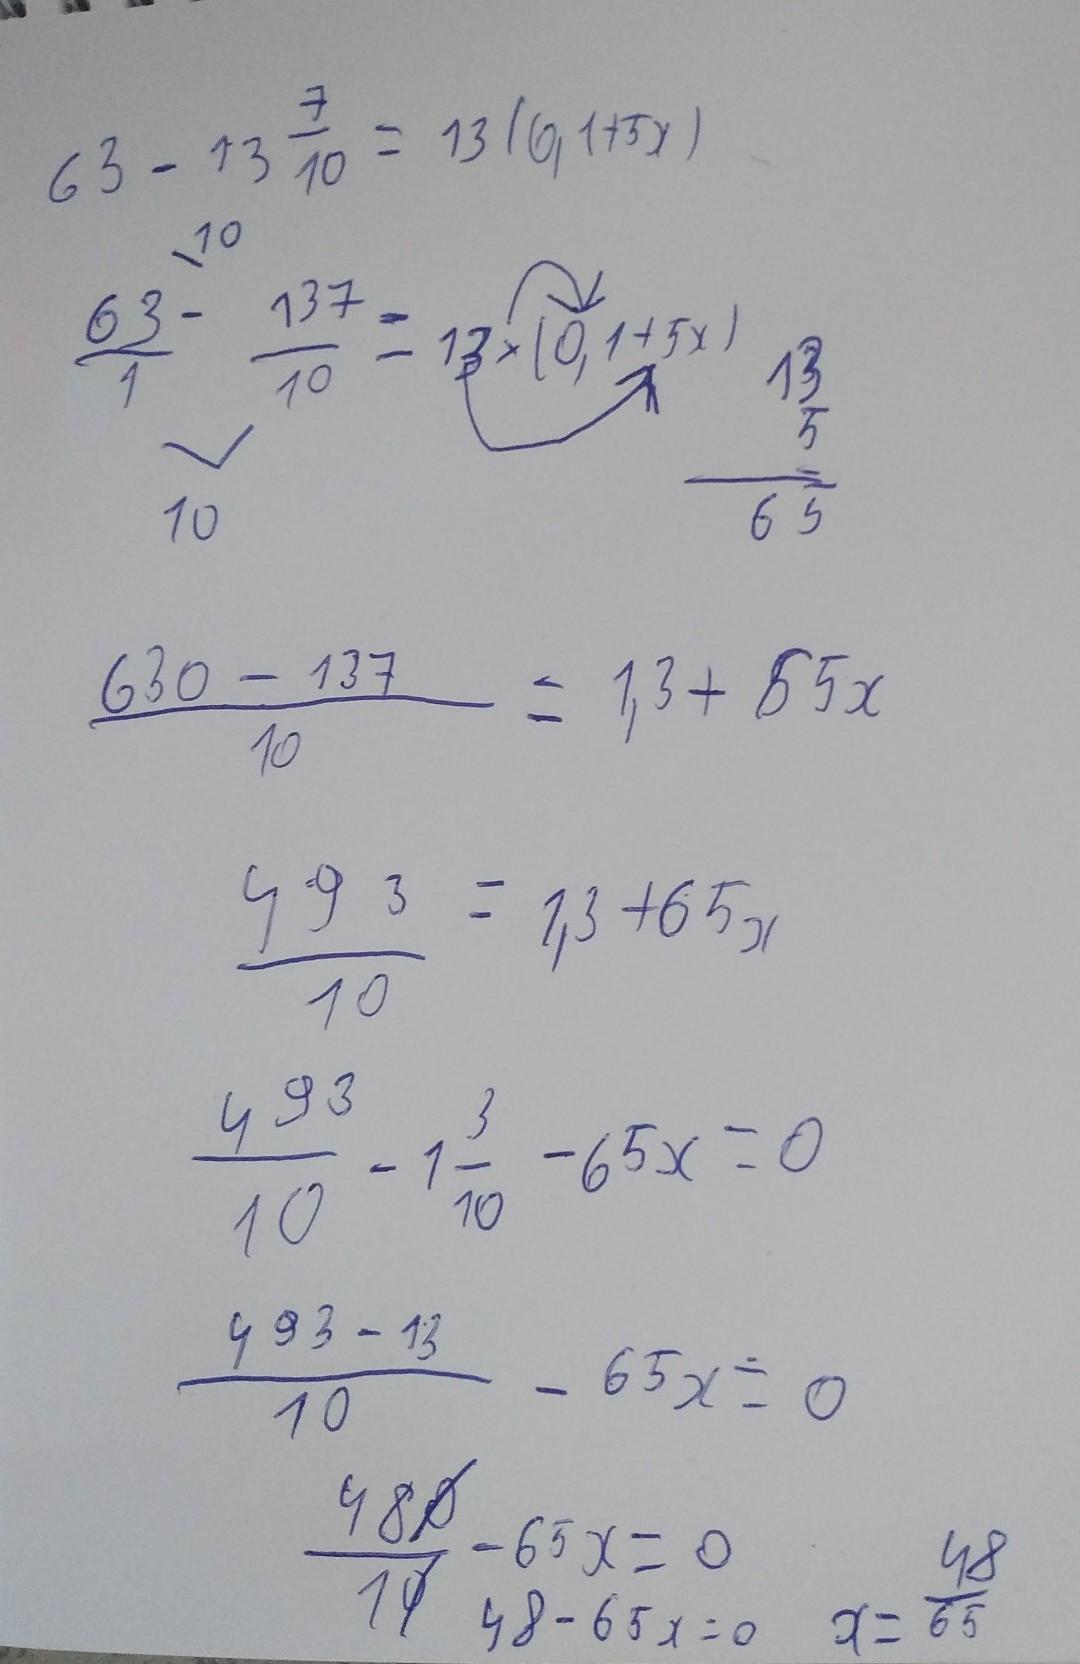 63 - 13 7/10 = 13(0,1+5x)
10
63/1 - 137/10 = 13×(0,1+5x)
13
5
65
10
630 - 137/10 = 1,3 + 65x
493/10 = 1,3+65x
493/10 - 1 3/10 - 65x = 0
493 - 13/10 - 65x = 0
480/10 - 65x = 0
48 - 65x = 0 x = 48/65